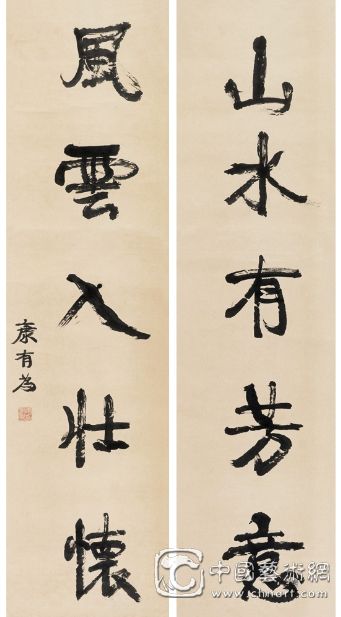 山水有芳意
風雲入壯懷
康有為
中國藝術網
www.chnart.com